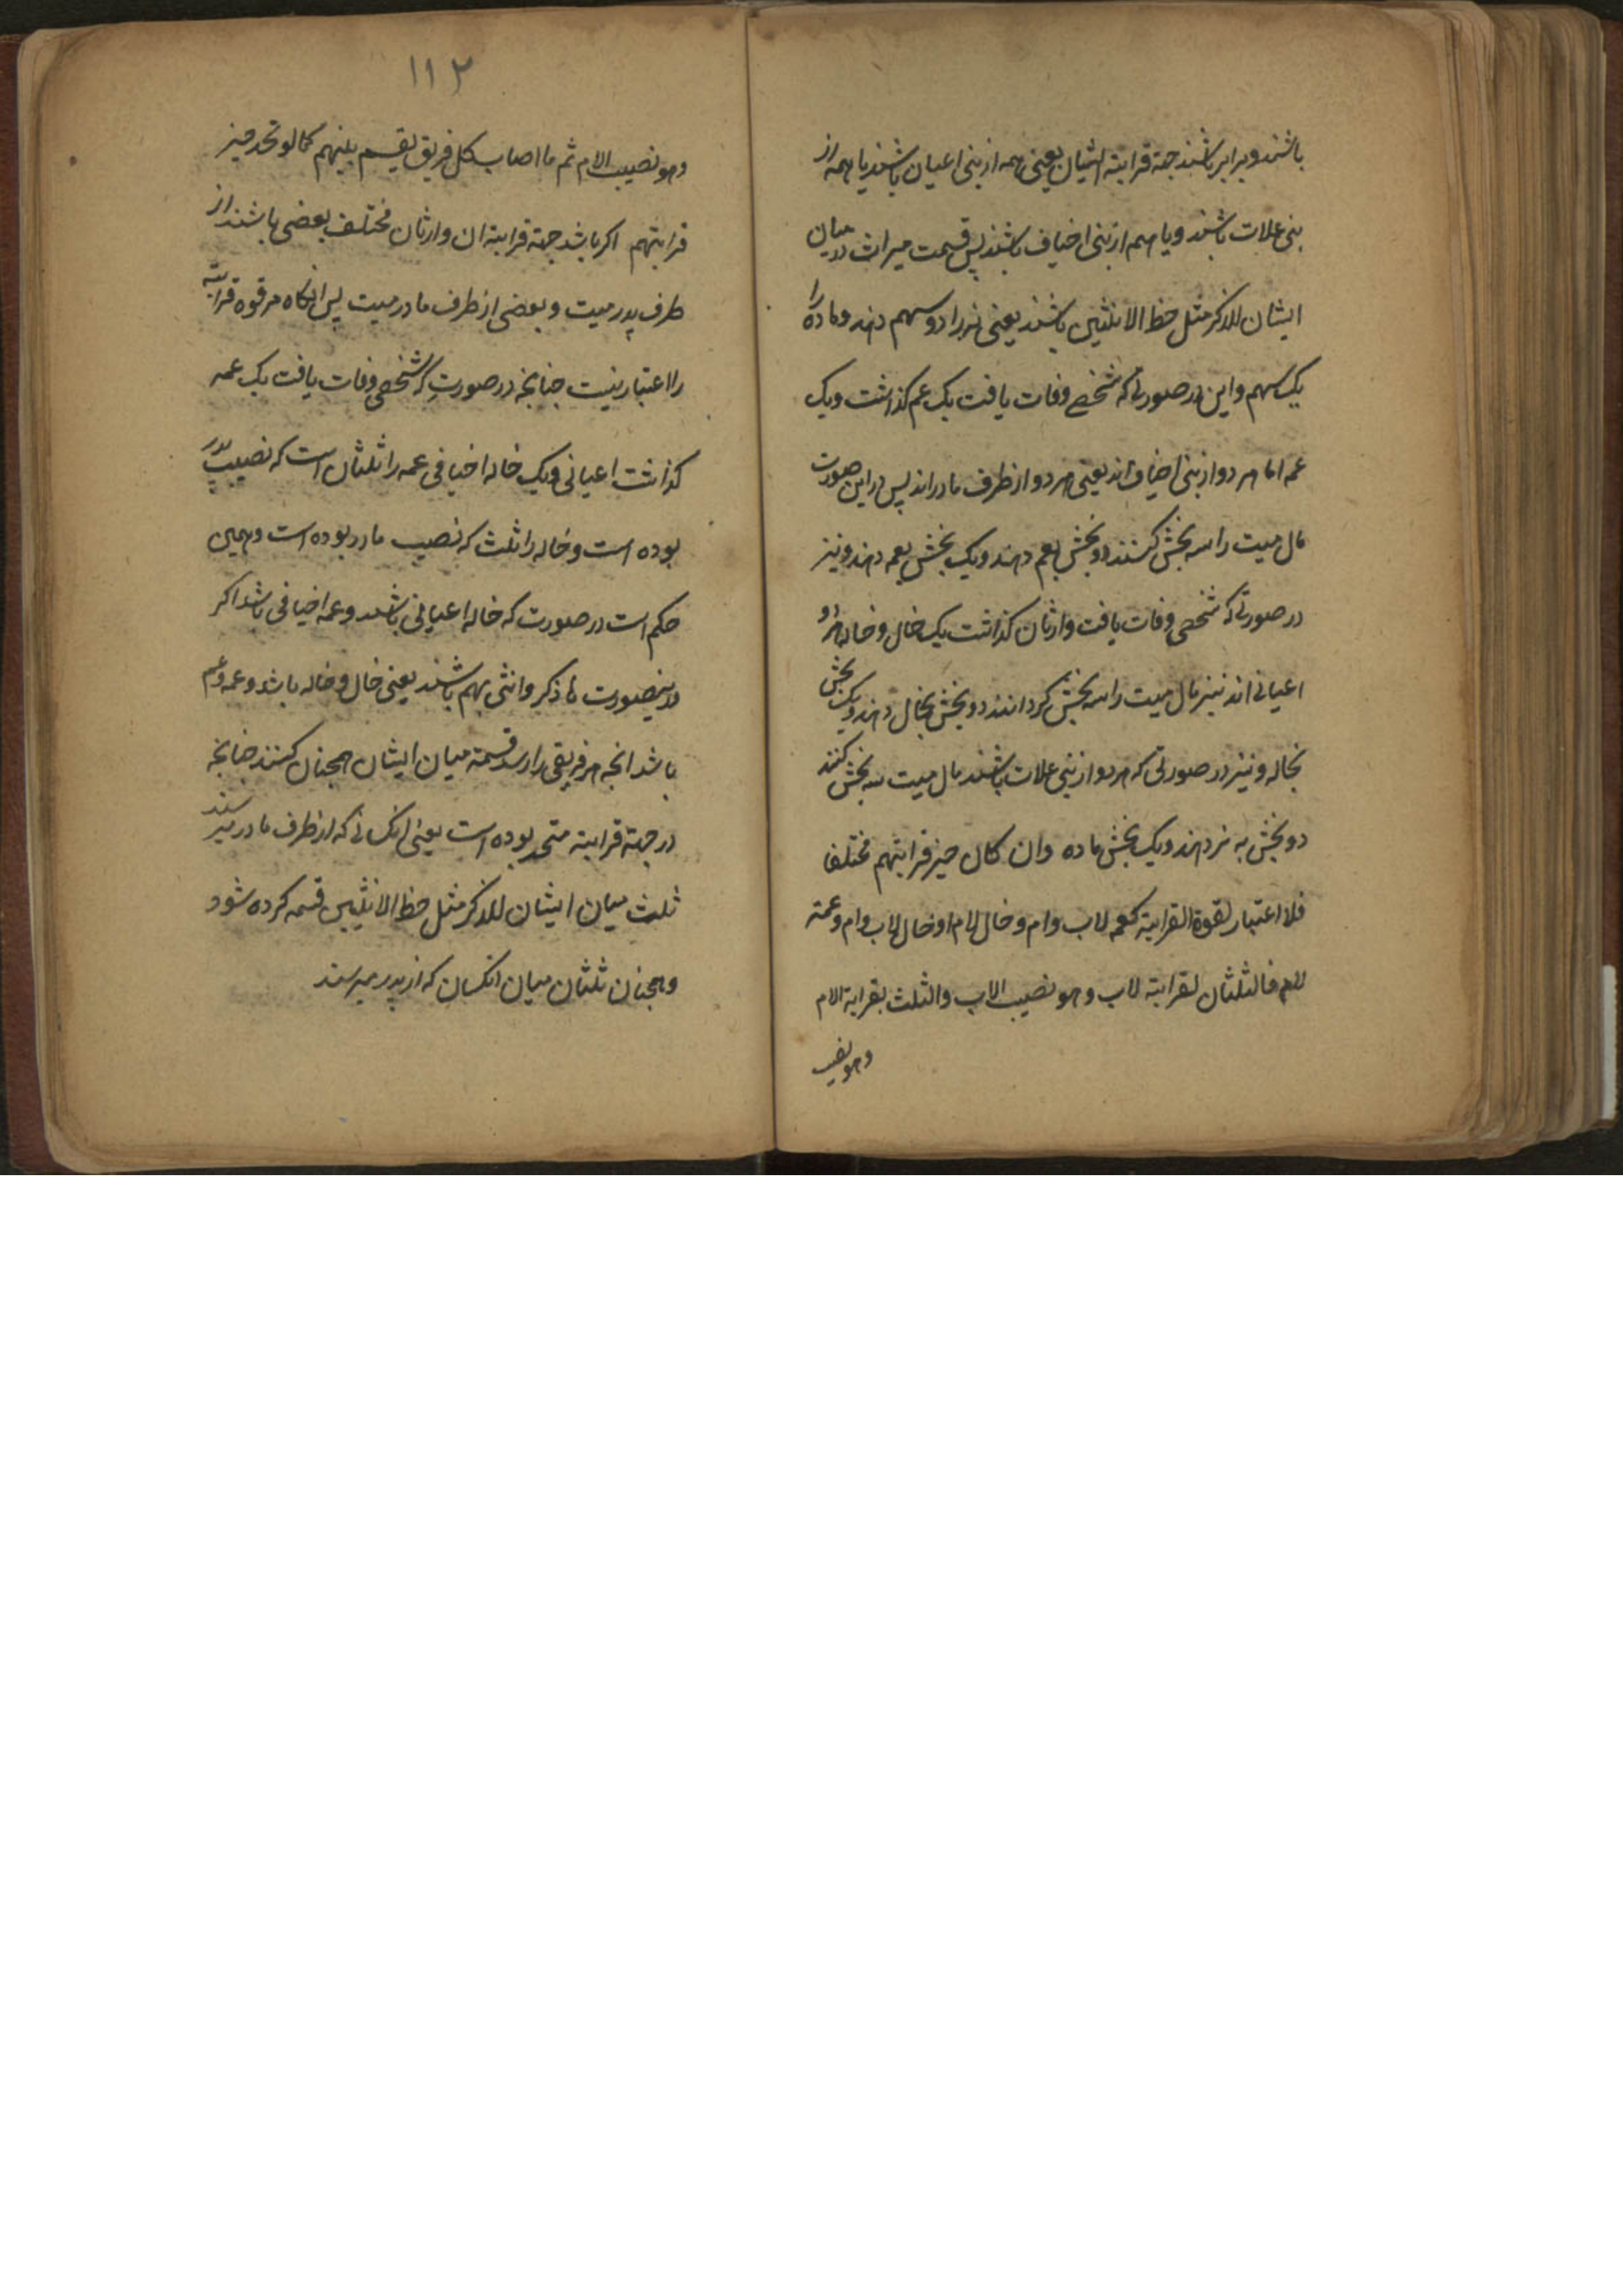 باشند و برابر باشند جهته قرابته ایشان یعنی همه از بنی اعیان باشند یا همه از
بنی علات باشند و یا همه از بنی اخیاف باشند پس قسمت میراث در میان
ایشان للذکر مثل حظ الانثیین باشند یعنی نر را دو سهم دهند و ماده را
یک سهم و این در صورتی که شخصے وفات یافت یک عم کذاشت و یک
عمه اما هر دو از بنی اخیاف اند یعنی هر دو از طرف مادر اند پس در این صورت
مال میت را سه بخش کنند دو بخش بعم دهند و یک بخش بعمه دهند و نیز
در صورتی که شخصی وفات یافت وارثان کذاشت یک خال و خاله هر دو
اعیانی اند نیز مال میت را سه بخش کردانند دو بخش بخال دهند و یک بخش
بخاله و نیز در صورتی که هر دو از بنی علات باشند مال میت سه بخش کنند
دو بخش به نر دهند و یک بخش ماده وان کان حیز قرابتهم مختلفا
فلا اعتبار لقوة القرابته کعمه لاب وام وخال لام او خال لاب وام وعمته
لام فالثلثان لقرابته لاب وهو نصیب الاب والثلث بقرابة الام
وهو نصیب
۱۱۲
وهو نصیب الام ثم ما اصاب کل فریق یقسم بینهم کما لو تحد حیز
قرابتهم اکر باشد جهته قرابته ان وارثان مختلف بعضی باشند از
طرف پدر میت و بعضی از طرف مادر میت پس انکاه مر قوه قرابته
را اعتبار نیست چنانچه در صورت که شخصی وفات یافت یک عمه
کذاشت اعیانی و یک خاله اخیافی عمه را ثلثان است که نصیب پدر
بوده است و خاله را ثلث که نصیب مادر بوده است و همین
حکم است در صورت که خاله اعیانی باشد و عمه اخیافی باشد اکر
درینصورت ما ذکر وانثی بهم باشند یعنی خال و خاله باشد و عمه و عم
باشد انچه هر فریقی را رسد قسمته میان ایشان همچنان کنند چنانچه
در جهته قرابته متحد بوده است یعنی انکسانی که از طرف مادر میرسند
ثلث میان ایشان للذکر مثل حظ الانثیین قسمه کرده شود
و همچنان ثلثان میان انکسان که از پدر میرسند